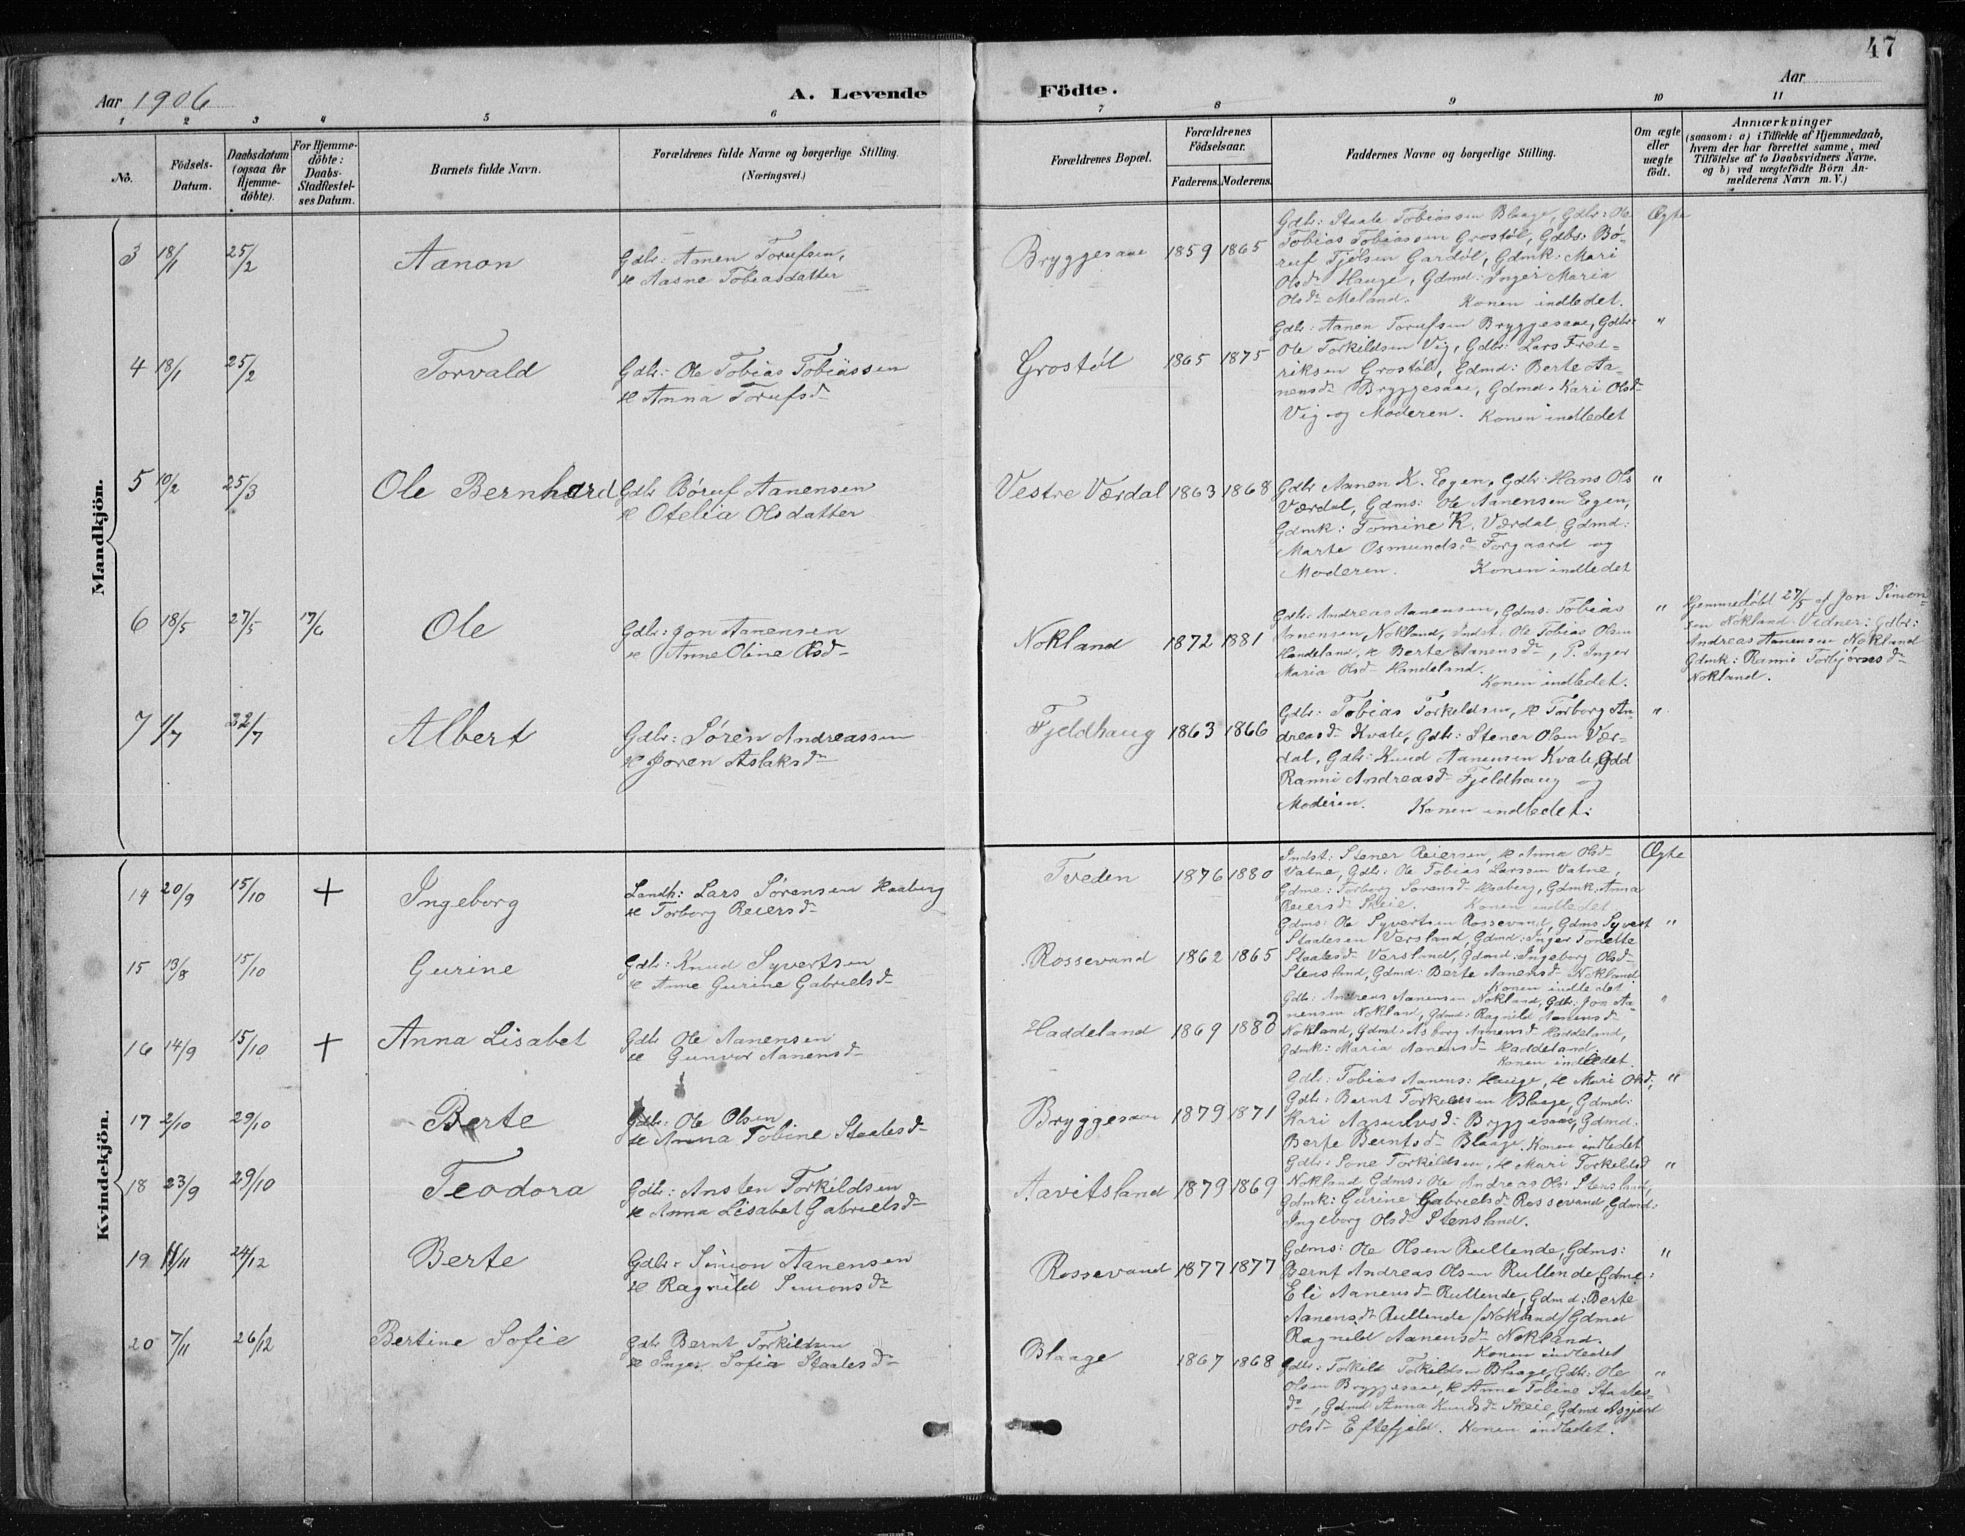 47
Aar 1906
A. Levende Födte.
Aar
1 2 3 4 5 6 7 8 9 10 11
No.
Födsels-Datum.
Daabsdatum (ogsaa for Hjemme-döbte).
For Hjemme-döbte: Daabs-Stadfæstel-ses Datum.
Barnets fulde Navn.
Forældrenes fulde Navne og borgerlige Stilling.
(Næringsvei.)
Forældrenes Bopæl.
Forældrenes Födselsaar.
Faderens. Moderens.
Faddernes Navne og borgerlige Stilling.
Om ægte eller uægte födt.
Anmærkninger
(saasom: a) i Tilfælde af Hjemmedaab,
hvem der har forrettet samme, med
Tilföielse af to Daabsvidners Navne,
og b) ved uægtefödte Börn An-
melderens Navn m.V.)
Mandkjön.
3 18/1 25/2 Aanon
Gdbr: Aanen Torufsen,
& Aasne Tobiasdatter
Bryggesaae 1859 1865
Gdbr: Staale Tobiassen Blaage, Gdbr: Ole
Tobias Tobiassen Grostøl, Gdbs: Bø-
ruf Fjølsen Gardøl, Gdmk: Mari
Olsdr Hauge, Gdmd: Inger Maria
Olsdr Meland. Konen indledet.
Ægte
4 18/1 25/2 Torvald
Gdbr: Ole Tobias Tobiassen
& Anna Torufsdr
Grostøl 1865 1875
Gdbr: Aanen Torufsen Bryggesaae, Gdbr:
Ole Torkildsen Vig, Gdbr: Lars Fred-
riksen Grostøl, Gdmd: Berte Aa-
nensdr Bryggesaae, Gdmd: Kari Olsdr
Vig og Moderen. Konen indledet
"
5 10/2 25/3 Ole Bernhard
Gdbr Børuf Aanensen
& Otelia Olsdatter
Vestre Værdal 1863 1868
Gdbr Aanen K. Egen, Gdbr: Hans Ols
Værdal, Gdms: Ole Aanensen Egen,
Gdmk: Tomine K. Værdal, Gdmd:
Marte Osmundsdr Forgaard og
Moderen. Konen indledet
"
6 18/5 27/5 17/6 Ole
Gdbr: Jon Aanensen
& Anne Oline Olsdr
Nokland 1872 1881
Gdbr: Andreas Aanensen, Gdms: Tobias
Aanensen, Nokland, Indst: Ole Tobias Olsen
Handeland, & Berte Aanensdr, P. Inger
Maria Olsdr Handeland.
Konen indledet.
"
Hjemmedøbt 27/5 af Jon Simon-
sen Nokland Vidner: Gdbr:
Andreas Aanensen Nokland
Gdmk: Rannie Torbjørnsdr
Nokland.
7 1/7 22/7 Albert
Gdbr: Søren Andreassen
& Joren Aslaksdr
Fjeldhaug 1863 1866
Gdbr: Tobias Torkeldsen, & Torborg An-
dreasdr Kvale, Gdbr: Stener Olsen Vær-
dal, Gdbr: Knud Aanensen Kvale, Gdd
Ranni Andreasdr Fjeldhaug og
Moderen. Konen indledet.
"
Kvindekjön.
14 20/9 15/10 + Ingeborg
Landh: Lars Sørensen Haaberg
& Torborg Reiersdr
Tveden 1876 1880
Indst: Stener Reiersen, & Anna Olsdr
Vatne, Gdbr: Ole Tobias Larssen Vatne,
Gdme: Torborg Sørensdr Haaberg, Gdmk: Anna
Reiersdr Skeie. Konen indledet
Ægte
15 13/8 15/10 Gurine
Gdbr: Knud Syvertsen
& Anne Gurine Gabrielsdr
Rossevand 1862 1865
Gdms: Ole Syvertsen Rossevand, Gdms Syvert
Staalesen Versland, Gdmd: Inger Tonette
Staalesdr Versland, Gdmd: Ingeborg Olsdr
Stensland, Gdmd: Berte Aanensdr Nokland
Konen indledet
"
16 14/9 15/10 + Anna Lisabet
Gdbr Ole Aanensen
& Gunvor Aanensdr
Haddeland 1869 1880
Gdbr: Andreas Aanensen Nokland, Gdbr: Jon Aa-
nensen Nokland, Gdmd: Ragnild Aanensdr
Nokland, Gdmd: Asborg Aanensdr Haddeland,
Gdmk: Maria Aanensdr Haddeland.
Konen indledet.
"
17 2/10 29/10 Berte
Gdbr: Ole Olsen
& Anna Tobine Staalesdr
Bryggesaae 1879 1871
Gdbr: Tobias Aanens: Hauge, & Mari Olsd,
Gdbr: Bernt Torkeldsen Blaage, Gdmd:
Kari Aasulvsdr Bryggesaae, Gdmd.
Berte Berntsdr Blaage. Konen indledet
"
18 23/9 29/10 Teodora
Gdbr: Ansten Torkildsen
& Anna Lisabet Gabrielsdr
Aavitsland 1879 1869
Gdbr: Sone Torkildsen, & Mari Torkildsd
Nokland Gdms: Ole Andreas Ols: Stensland,
Gdmk: Gurine Gabrielsdr Rossevand, Gdmd:
Ingeborg Olsdr Stensland.
"
19 11/11 24/12 Berte
Gdbr: Simon Aanensen
& Ragnild Simonsdr
Rossevand 1877 1877
Gdms: Ole Olsen Rullende, Gdms:
Bernt Andreas Olsen Rullende, Gdme:
Eli Aanensdr Rullende, Gdmd: Berte
Aanensdr Rullende /Nokland/ Gdmd
Ragnild Aanensdr Nokland.
Konen indledet
"
20 7/11 26/12 Bertine Sofie
Gdbr Bernt Torkildsen
& Inger Sofia Staalesdr
Blaage 1867 1868
Gdbr: Torkild Torkildsen Blaage, Gdbr: Ole
Olsen Bryggesaae, & Anne Tobine Staales-
dr, Gdmd Anna Knudsdr Skeie, Gdmd Asgjerd
Olsdr Eftefjeld. Konen indledet.
"